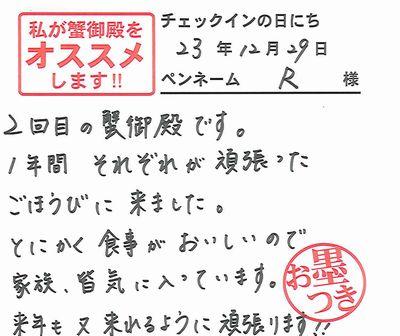 私が蟹御殿を
オススメ
します!!
チェックインの日にち
23年12月29日
ペンネーム R 様
2回目の蟹御殿です。
1年間 それぞれが頑張った
ごほうびに来ました。
とにかく食事がおいしいので
家族、皆気に入っています。
来年も又来れるように頑張ります!!
お墨つき